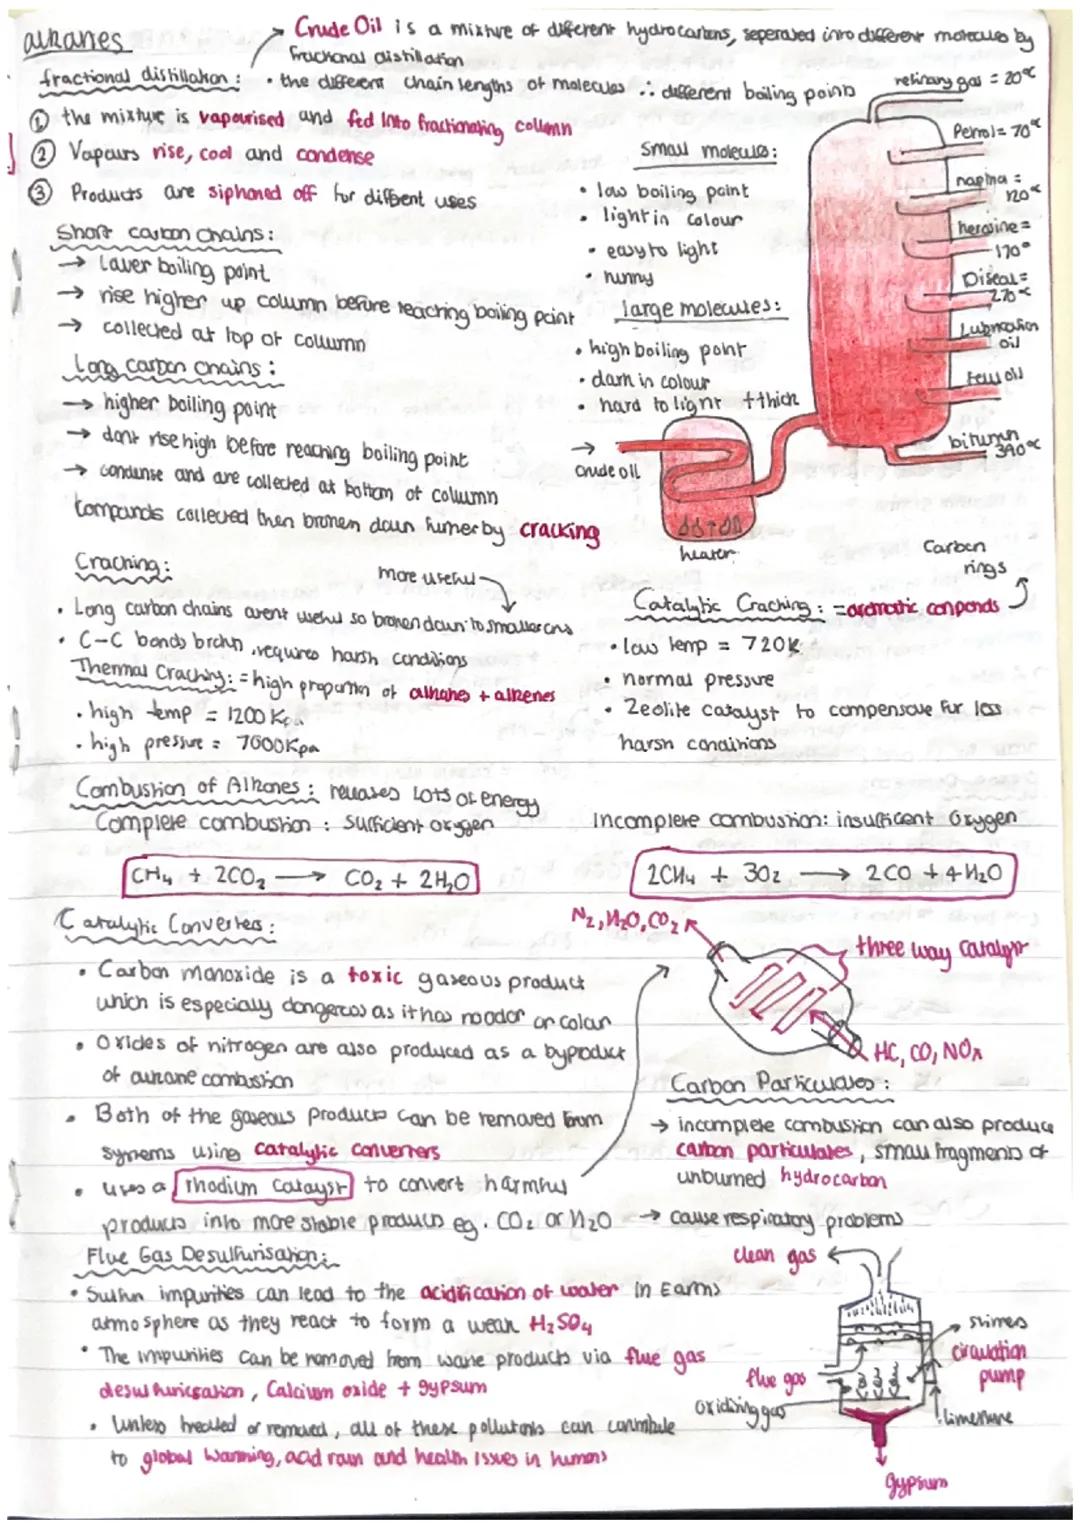 alkanes
→ Crude Oil is a mixture of different hydrocarbons, seperated into different molecules by
fractional distillation
fractional distillation : • the different chain lengths of molecules ∴ different boiling points
① the mixture is vapourised and fed into fractionating column
② Vapours rise, cool and condense
③ Products are siphoned off for different uses
Short carbon chains :
→ Lower boiling point
→ rise higher up column before reaching boiling point
→ collected at top of collumn
Long carbon chains :
→ higher boiling point
→ dont rise high before reaching boiling point
→ condense and are collected at bottom of collumn
Compounds collected then broken down further by cracking
Small molecules :
• low boiling point
• light in colour
• easy to light
• runny
large molecules :
• high boiling point
• dark in colour
• hard to light + thick
→
crude oil
heater
refinary gas = 20°C
Petrol = 70°C
naptha =
120°C
kerosine =
170°
Diseal =
270°C
Lubrication
oil
Fewl oil
bitumen
340°C
Cracking :
more useful
• Long carbon chains arent useful so broken down to smaller ones
• C-C bonds brokn, requires harsh conditions
Thermal Cracking : = high proportion of alkanes + alkenes
• high temp = 1200 K
• high pressure = 7000Kpa
Carbon
rings
Catalytic Cracking : = aromatic componds
• low temp = 720K
• normal pressure
• Zeolite catalyst to compensate for less
harsh conditions
Combustion of Alkanes : releases LOTS of energy
Complete combustion : Sufficient oxygen
CH₄ + 2CO₂ → CO₂ + 2H₂O
Incomplete combustion : insufficent oxygen
2CH₄ + 3O₂ → 2CO + 4H₂O
Catalytic Converters :
• Carbon monoxide is a toxic gaseous product
which is especially dangerous as it has no odor or colour
• Oxides of nitrogen are also produced as a byproduct
of alkane combustion
• Both of the gaseous products can be removed from
systems using catalytic converters
• uses a rhodium catalyst to convert harmful
products into more stable products eg. CO₂ or H₂O
N₂, H₂O, CO₂
three way catalyst
HC, CO, NOx
Carbon Particulates :
→ incomplete combustion can also produce
carbon particulates, small fragments of
unburned hydrocarbon
→ cause respiratory problems
Flue Gas Desulfurisation :
• Sulfur impurities can lead to the acidification of water in Earths
atmosphere as they react to form a weak H₂SO₄
• The impurities can be removed from waste products via flue gas
desulfurisation, Calcium oxide + gypsum
• Unless treated or removed, all of these pollutants can contribute
to global warming, acid rain and health issues in humans
clean gas
circulation
pump
flue gas
oxidising gas
limestone
gypsum